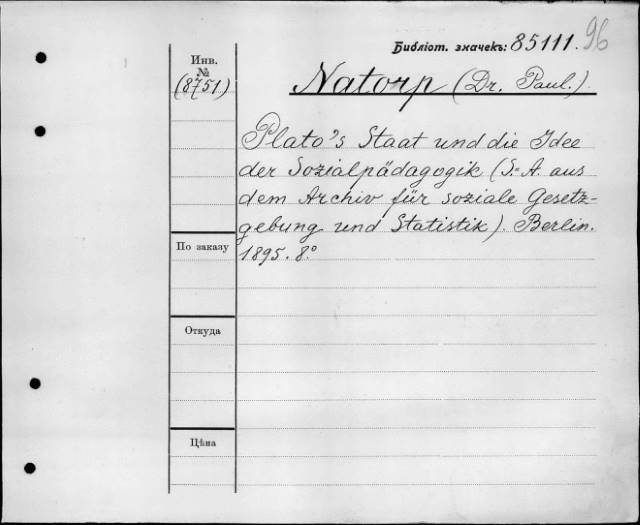 Библіот. значекъ: 85111. 96
Инв.
№
(8751)
Natorp (Dr. Paul.).
Plato's Staat und die Idee
der Sozialpädagogik (S.-A. aus
dem Archiv für soziale Gesetz-
gebung und Statistik). Berlin.
1895. 8°.
По заказу
Откуда
Цѣна